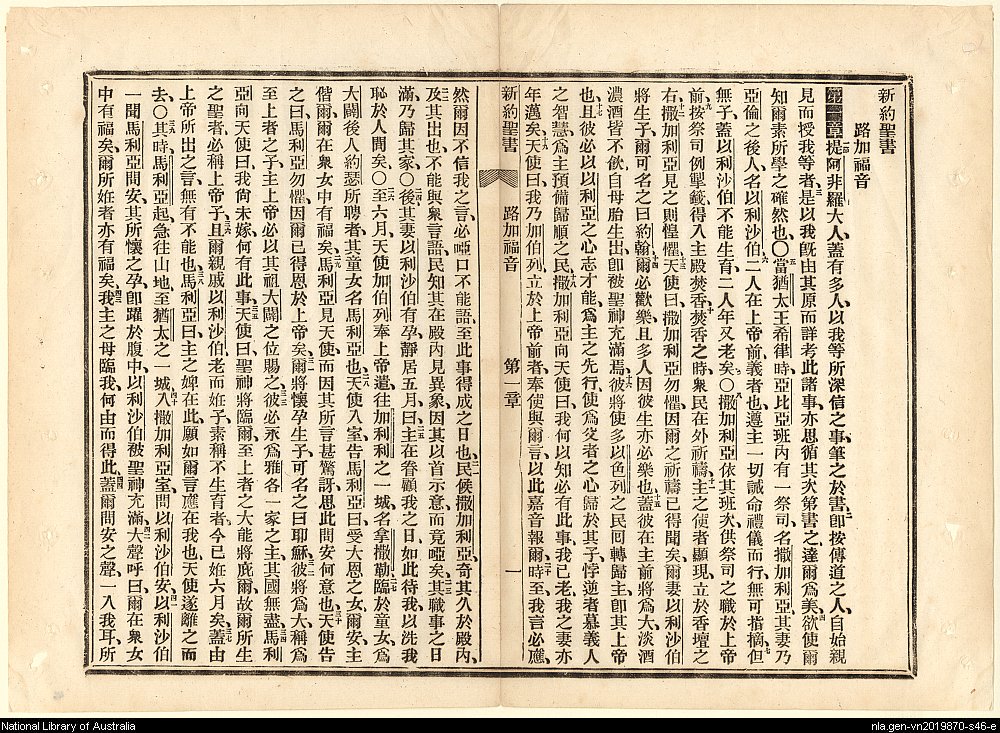 新約聖書
路加福音
第一章提阿非羅大人、蓋有多人、以我等所深信之事、筆之於書、二卽按傳道之人、自始親
見而授我等者、三是以我旣由其原而詳考此諸事、亦思循其次第書之達爾爲美、四欲使爾
知爾素所學之確然也、〇五當猶太王希律時、亞比亞班內有一祭司、名撒加利亞、其妻乃
亞倫之後人、名以利沙伯、六二人在上帝前義者也、遵主一切誡命禮儀而行、無可指摘、七但
無子、蓋以利沙伯不能生育、二人年又老矣、〇八撒加利亞依其班次、供祭司之職於上帝
前、九按祭司例掣籤、得入主殿焚香、十焚香之時、衆民在外祈禱、十一主之使者顯現、立於香壇之
右、十二撒加利亞見之則惶懼、十三天使曰、撒加利亞勿懼、因爾之祈禱已得聞矣、爾妻以利沙伯
將生子、爾可名之曰約翰、十四爾必歡樂、且多人因彼生亦必樂也、十五蓋彼在主前將爲大、淡酒
濃酒皆不飲、自母胎生出、卽被聖神充滿焉、十六彼將使多以色列之民、回轉歸主、卽其上帝
也、十七且彼必以以利亞之心志才能、爲主之先行、使爲父者之心歸於其子、悖逆者慕義人
之智慧、爲主預備歸順之民、十八撒加利亞向天使曰、我何以知必有此事、我已老、我之妻亦
年邁矣、十九天使曰、我乃加伯列、立於上帝前者、奉使與爾言、以此嘉音報爾、二十時至我言必應、
新約聖書 路加福音 第一章 一
然爾因不信我之言、必啞口不能語、至此事得成之日也、二一民候撒加利亞、奇其久於殿內、
二二及其出也、不能與衆言語、民知其在殿內見異象、因其以首示意、而竟啞矣、二三其職事之日
滿、乃歸其家、〇二四後其妻以利沙伯有孕、靜居五月、曰、二五主在眷顧我之日、如此待我、以洗我
恥於人間矣、〇二六至六月、天使加伯列奉上帝遣、往加利利之一城、名拿撒勒、二七臨於童女、爲
大闢後人約瑟所聘者、其童女名馬利亞也、二八天使入室、告馬利亞曰、受大恩之女、爾安、主
偕爾、爾在衆女中有福矣、二九馬利亞見天使、而因其所言甚驚訝、思此問安何意也、三十天使告
之曰、馬利亞勿懼、因爾已得恩於上帝矣、三一爾將懷孕生子、可名之曰耶穌、三二彼將爲大、稱爲
至上者之子、主上帝必以其祖大闢之位賜之、三三彼必永爲雅各一家之主、其國無盡焉、三四馬利
亞向天使曰、我尙未嫁、何有此事、三五天使曰、聖神將臨爾、至上者之大能將庇爾、故爾所生
之聖者、必稱上帝子、三六且爾親戚以利沙伯、老而姙子、素稱不生育者、今已姙六月矣、三七蓋由
上帝所出之言、無有不能也、三八馬利亞曰、主之婢在此、願如爾言應在我也、天使遂離之而
去、〇三九其時馬利亞起、急往山地、至猶太之一城、四十入撒加利亞室、問以利沙伯安、四一以利沙伯
一聞馬利亞問安、其所懷之孕、卽躍於腹中、以利沙伯被聖神充滿、四二大聲呼曰、爾在衆女
中有福矣、爾所姙者亦有福矣、四三我主之母臨我、何由而得此、四四蓋爾問安之聲、一入我耳、所
National Library of Australia
nla.gen-vn2019870-s46-e